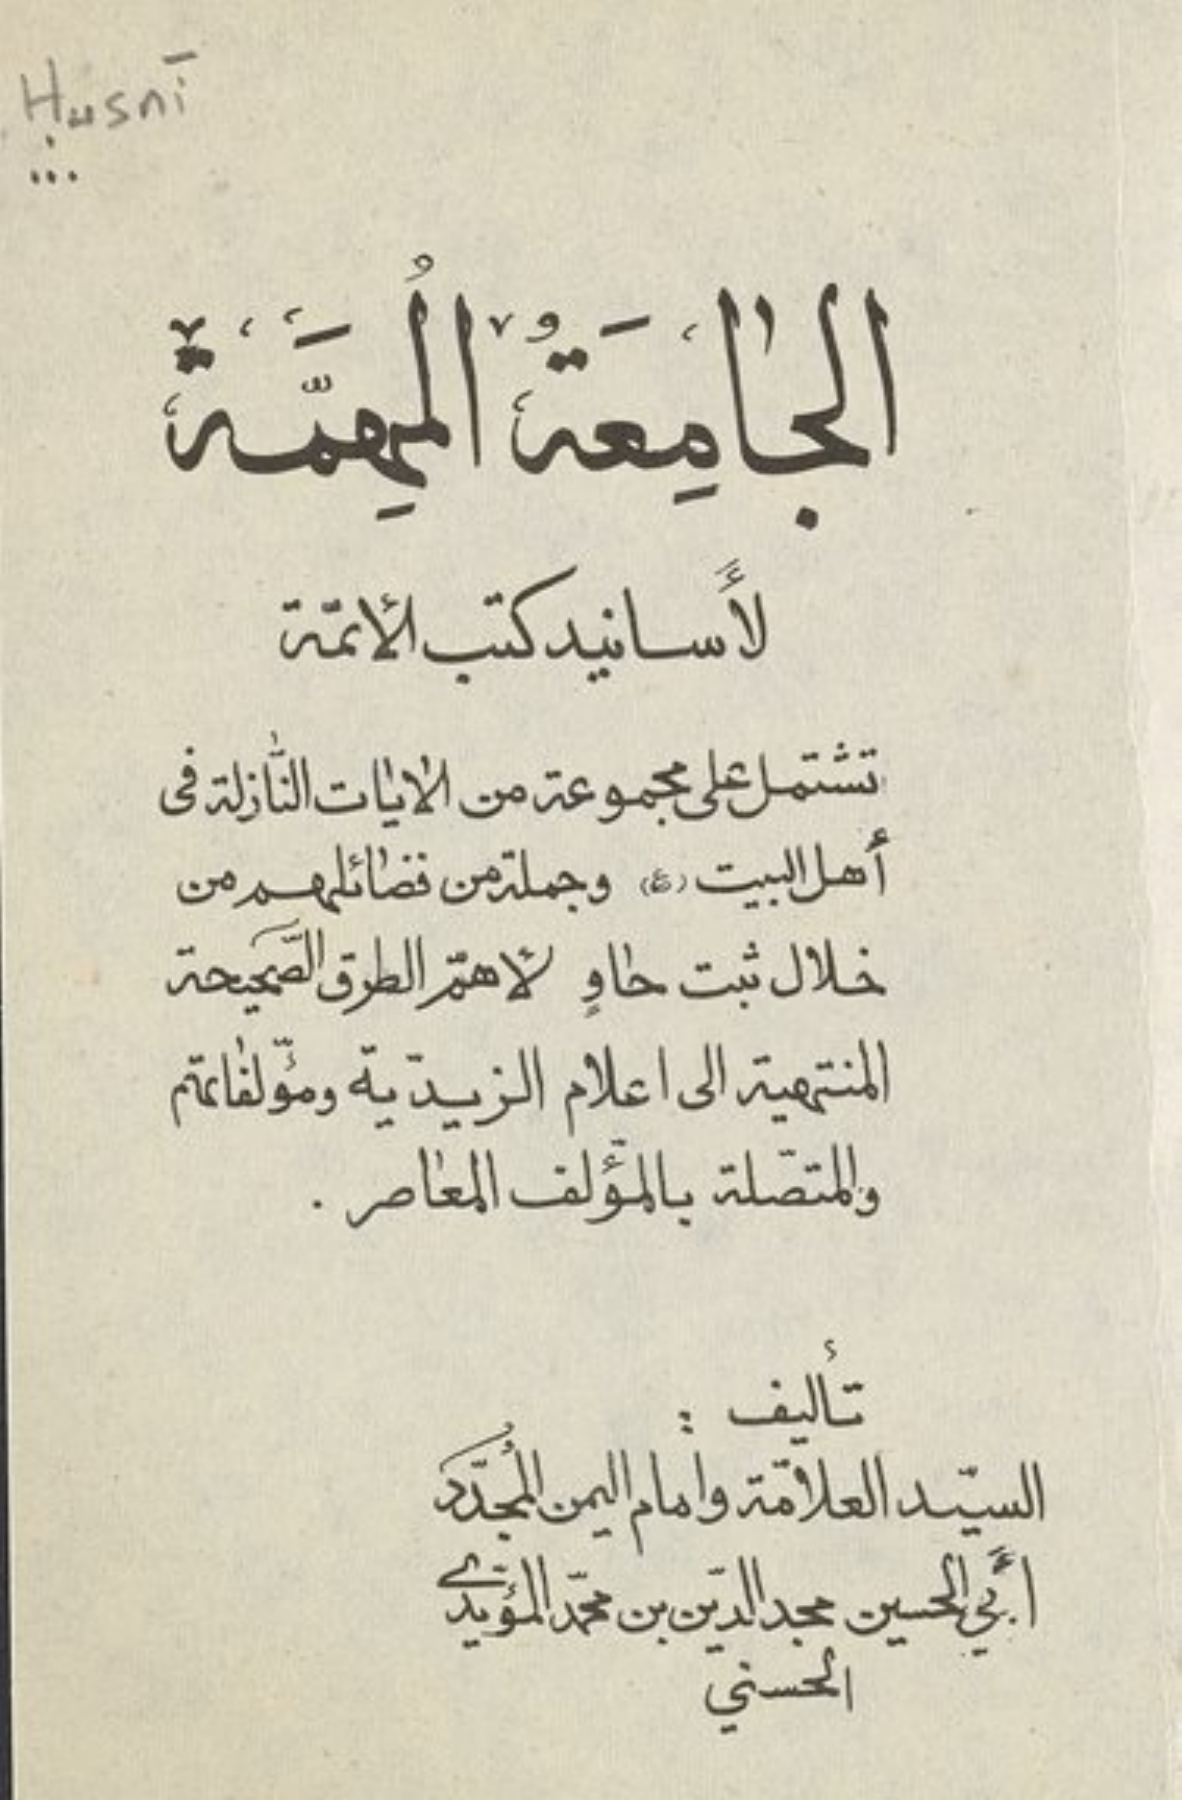 Ḥusnī
الجامِعَةُ المُهِمَّة
لأسانيد كتب الأئمّة
تشتمل على مجموعة من الايات النّازلة فى
أهل البيت (ع) وجملة من فضائلهم من
خلال ثبت حاوٍ لأهمّ الطرق الصَّحيحة
المنتهية الى اعلام الزيديّة ومؤلّفاتهم
والمتصّلة بالمؤلّف المعاصر .
تأليف :
السيّد العلاّمة وامام اليمن المُجدّد
أبي الحسين مجد الدّين بن محمّد المؤيّدى
الحسني